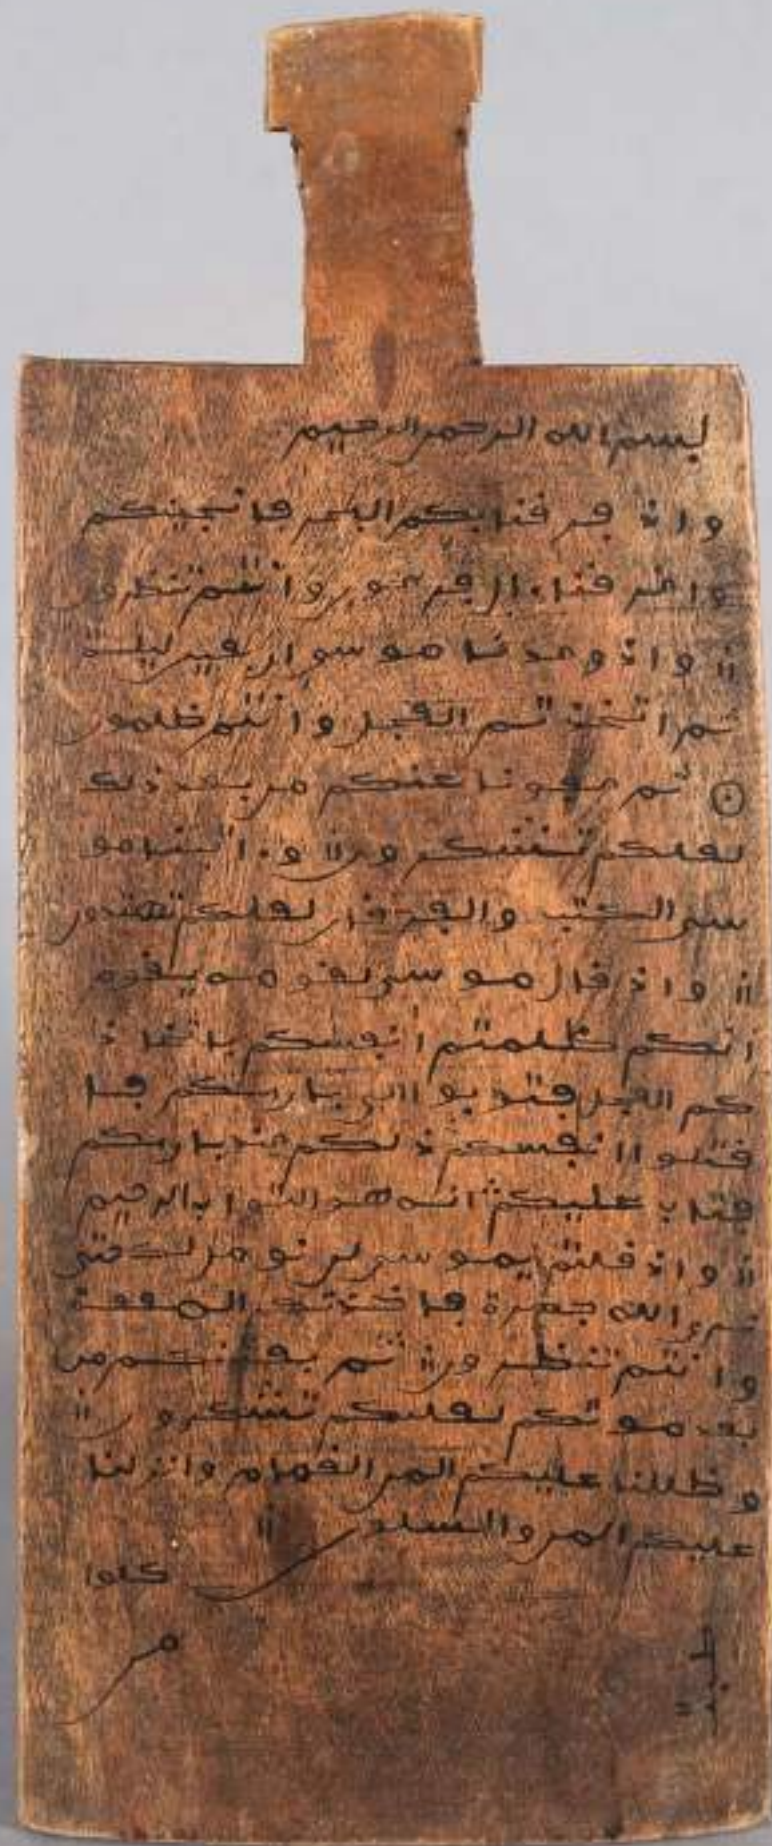 بسم الله الرحمن الرحيم
واذ فرفنا بكم البحر فانجينكم
واغرفنا ءال فرعون وانتم تنظرون
واذ وعدنا موسى اربعين ليلة
ثم اتخذتم العجل وانتم ظلمون
ثم عفونا عنكم من بعد ذلك
لعلكم تشكرون وءاتينا مو
سى الكتب والفرفان لعلكم تهتدون
واذ فال موسى لفومه يفوم
انكم ظلمتم انفسكم باتخاذ
كم العجل فتوبوا الى باريكم فا
فتلوا انفسكم ذلكم عند باريكم
فتاب عليكم انه هو التواب الرحيم
واذ فلتم يموسى لن نومن لك حتى
نرى الله جهرة فاخذتكم الصعفة
وانتم تنظرون ثم بعثنكم من
بعد موتكم لعلكم تشكرون
وظللنا عليكم المن الغمام وانزلنا
عليكم المن والسلوى
كلوا
من